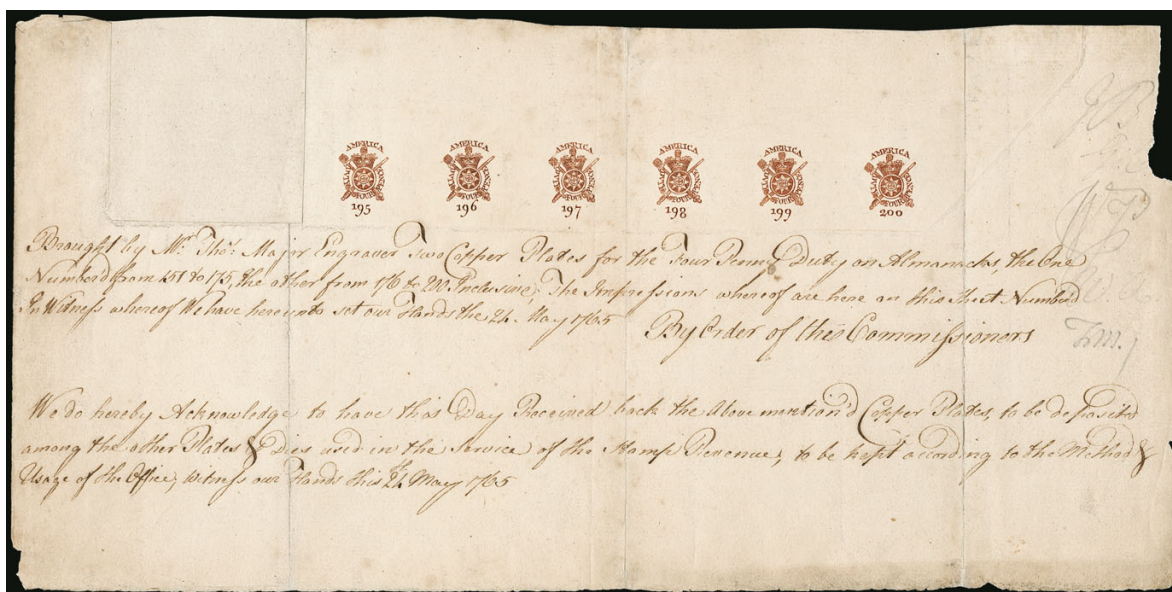 AMERICA AMERICA AMERICA AMERICA AMERICA AMERICA
195 196 197 198 199 200
Brought by Mr. Thos. Major Engraver Two Copper Plates for the Four Penny Duty on Almanacks, the One
Numberd from 151 to 175, the other from 176 to 200 Inclusive; The Impressions whereof are here on this Sheet Number'd
In Witness whereof We have hereunto set our Hands the 24 May 1765
By Order of the Commissioners
T.M.
We do hereby Acknowledge to have this Day Received back the Above mention'd Copper Plates, to be deposited
among the other Plates & Dies used in the Service of the Stamp Revenue, to be kept according to the Method &
Usage of the Office, witness our Hands this 24th May 1765